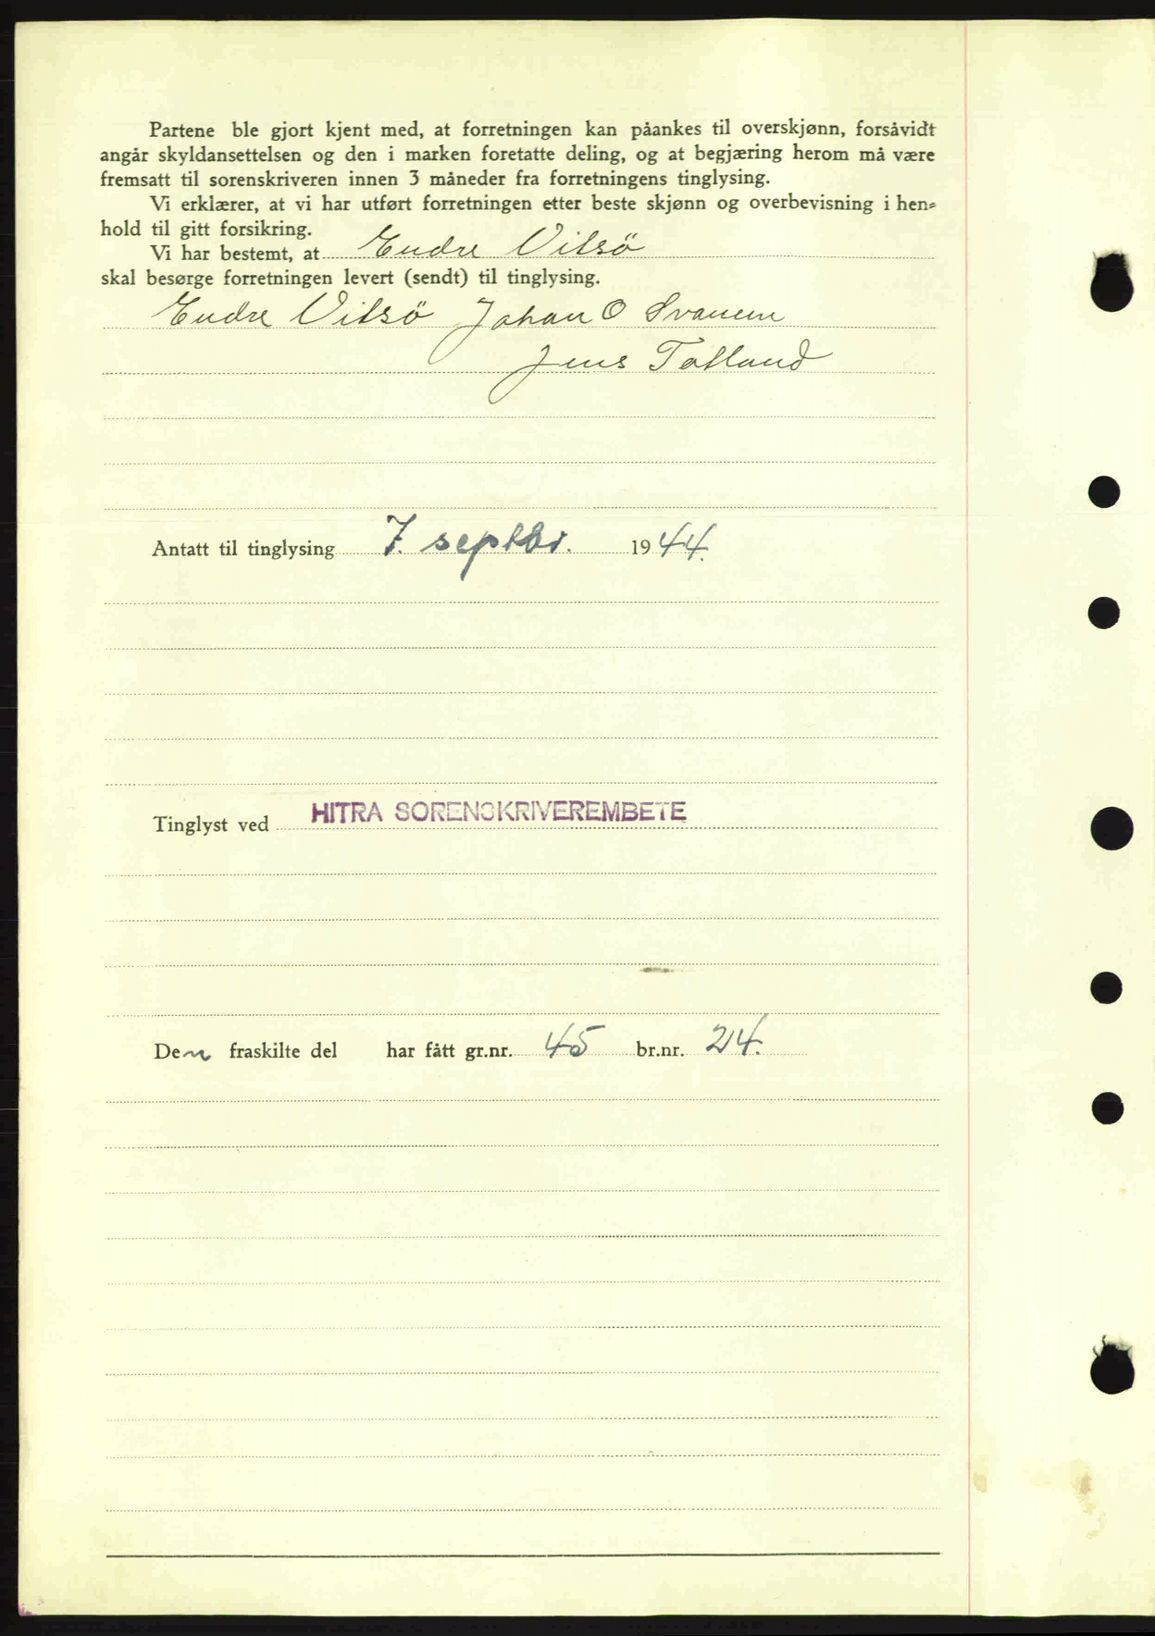 Partene ble gjort kjent med, at forretningen kan påankes til overskjønn, forsåvidt
angår skyldansettelsen og den i marken foretatte deling, og at begjæring herom må være
fremsatt til sorenskriveren innen 3 måneder fra forretningens tinglysing.
Vi erklærer, at vi har utført forretningen etter beste skjønn og overbevisning i hen-
hold til gitt forsikring.
Vi har bestemt, at Endre Vitsö
skal besørge forretningen levert (sendt) til tinglysing.
Endre Vitsö Johan O Svanem
Jens Tofland
Antatt til tinglysing 7. septbr. 1944.
Tinglyst ved HITRA SORENSKRIVEREMBETE
Den fraskilte del har fått gr.nr. 45 br.nr. 24.